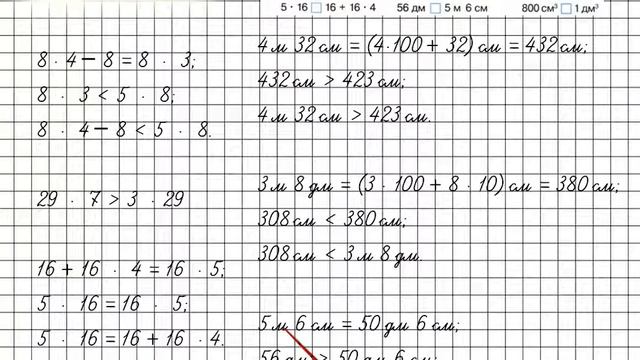 5 · 16 □ 16 + 16 · 4 56 дм □ 5 м 6 см 800 см³ □ 1 дм³
8 · 4 – 8 = 8 · 3;
8 · 3 < 5 · 8;
8 · 4 – 8 < 5 · 8.
29 · 7 > 3 · 29
16 + 16 · 4 = 16 · 5;
5 · 16 = 16 · 5;
5 · 16 = 16 + 16 · 4.
4 м 32 см = (4 · 100 + 32) см = 432 см;
432 см > 423 см;
4 м 32 см > 423 см.
3 м 8 дм = (3 · 100 + 8 · 10) см = 380 см;
308 см < 380 см;
308 см < 3 м 8 дм.
5 м 6 см = 50 дм 6 см;
56 дм > 50 дм 6 см;